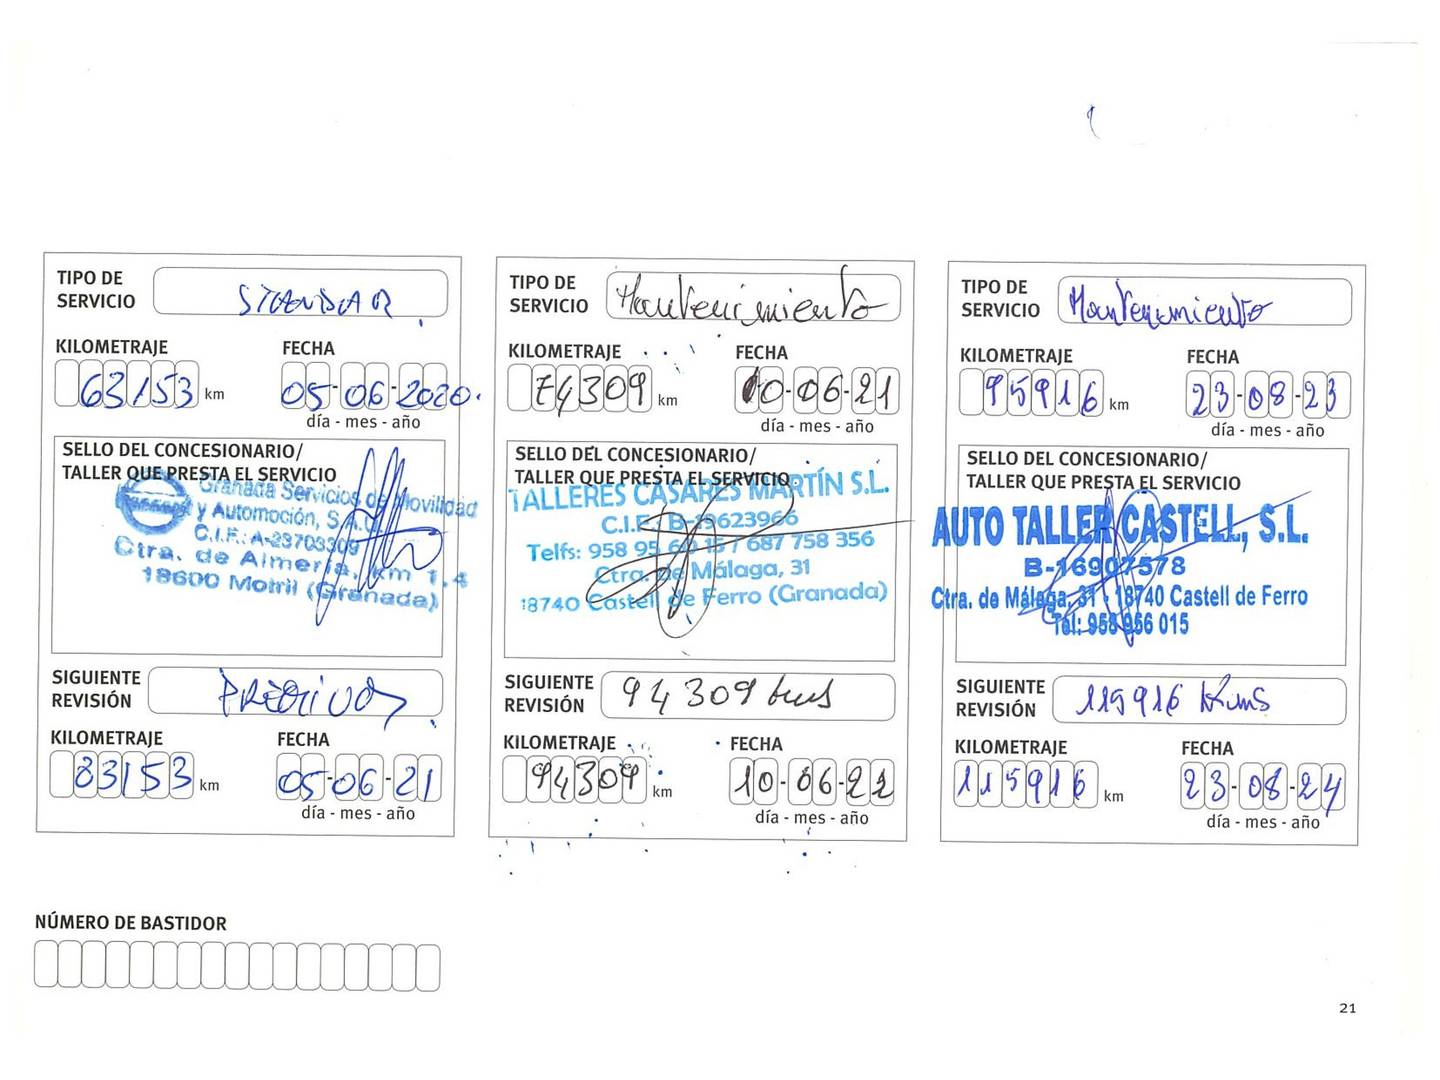 TIPO DE
SERVICIO
STANDAR
KILOMETRAJE
FECHA
63153 km
05-06-2020.
día - mes - año
SELLO DEL CONCESIONARIO/
TALLER QUE PRESTA EL SERVICIO
Granada Servicios de Movilidad
y Automoción, S.A.U
C.I.F.: A-23703309
Ctra. de Almería, km 1,4
18600 Motril (Granada)
SIGUIENTE
REVISIÓN
KILOMETRAJE
FECHA
83153 km
05-06-21
día - mes - año
TIPO DE
SERVICIO
Mantenimiento
KILOMETRAJE
FECHA
74309 km
10-06-21
día - mes - año
SELLO DEL CONCESIONARIO/
TALLER QUE PRESTA EL SERVICIO
TALLERES CASARES MARTÍN S.L.
C.I.F. B-19623966
Telfs: 958 95 60 15 / 687 758 356
Ctra. de Málaga, 31
18740 Castell de Ferro (Granada)
SIGUIENTE
REVISIÓN
94309 kms
KILOMETRAJE
FECHA
94309 km
10-06-22
día - mes - año
TIPO DE
SERVICIO
Mantenimiento
KILOMETRAJE
FECHA
95916 km
23-08-23
día - mes - año
SELLO DEL CONCESIONARIO/
TALLER QUE PRESTA EL SERVICIO
AUTO TALLER CASTELL, S.L.
B-16907578
Ctra. de Málaga, 31 - 18740 Castell de Ferro
Tel: 958 956 015
SIGUIENTE
REVISIÓN
115916 Kms
KILOMETRAJE
FECHA
115916 km
23-08-24
día - mes - año
NÚMERO DE BASTIDOR
21